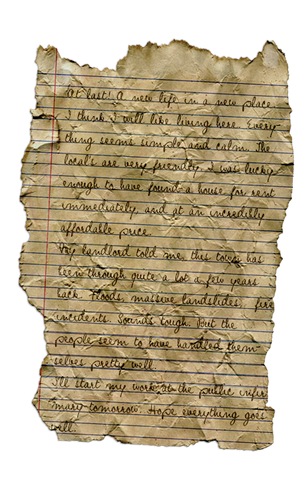 At last! A new life in a new place.
I think I will like living here. Every
thing seems simple and calm. The
locals are very friendly. I was lucky
enough to have found a house for rent
immediately and at an incredibly
affordable price.
My landlord told me this town has
been through quite a lot a few years
back. Floods, massive landslides, fire
incidents. Sounds tough. But the
people seem to have handled them-
selves pretty well.
I'll start my work at the public infir
mary tomorrow. Hope everything goes
well.